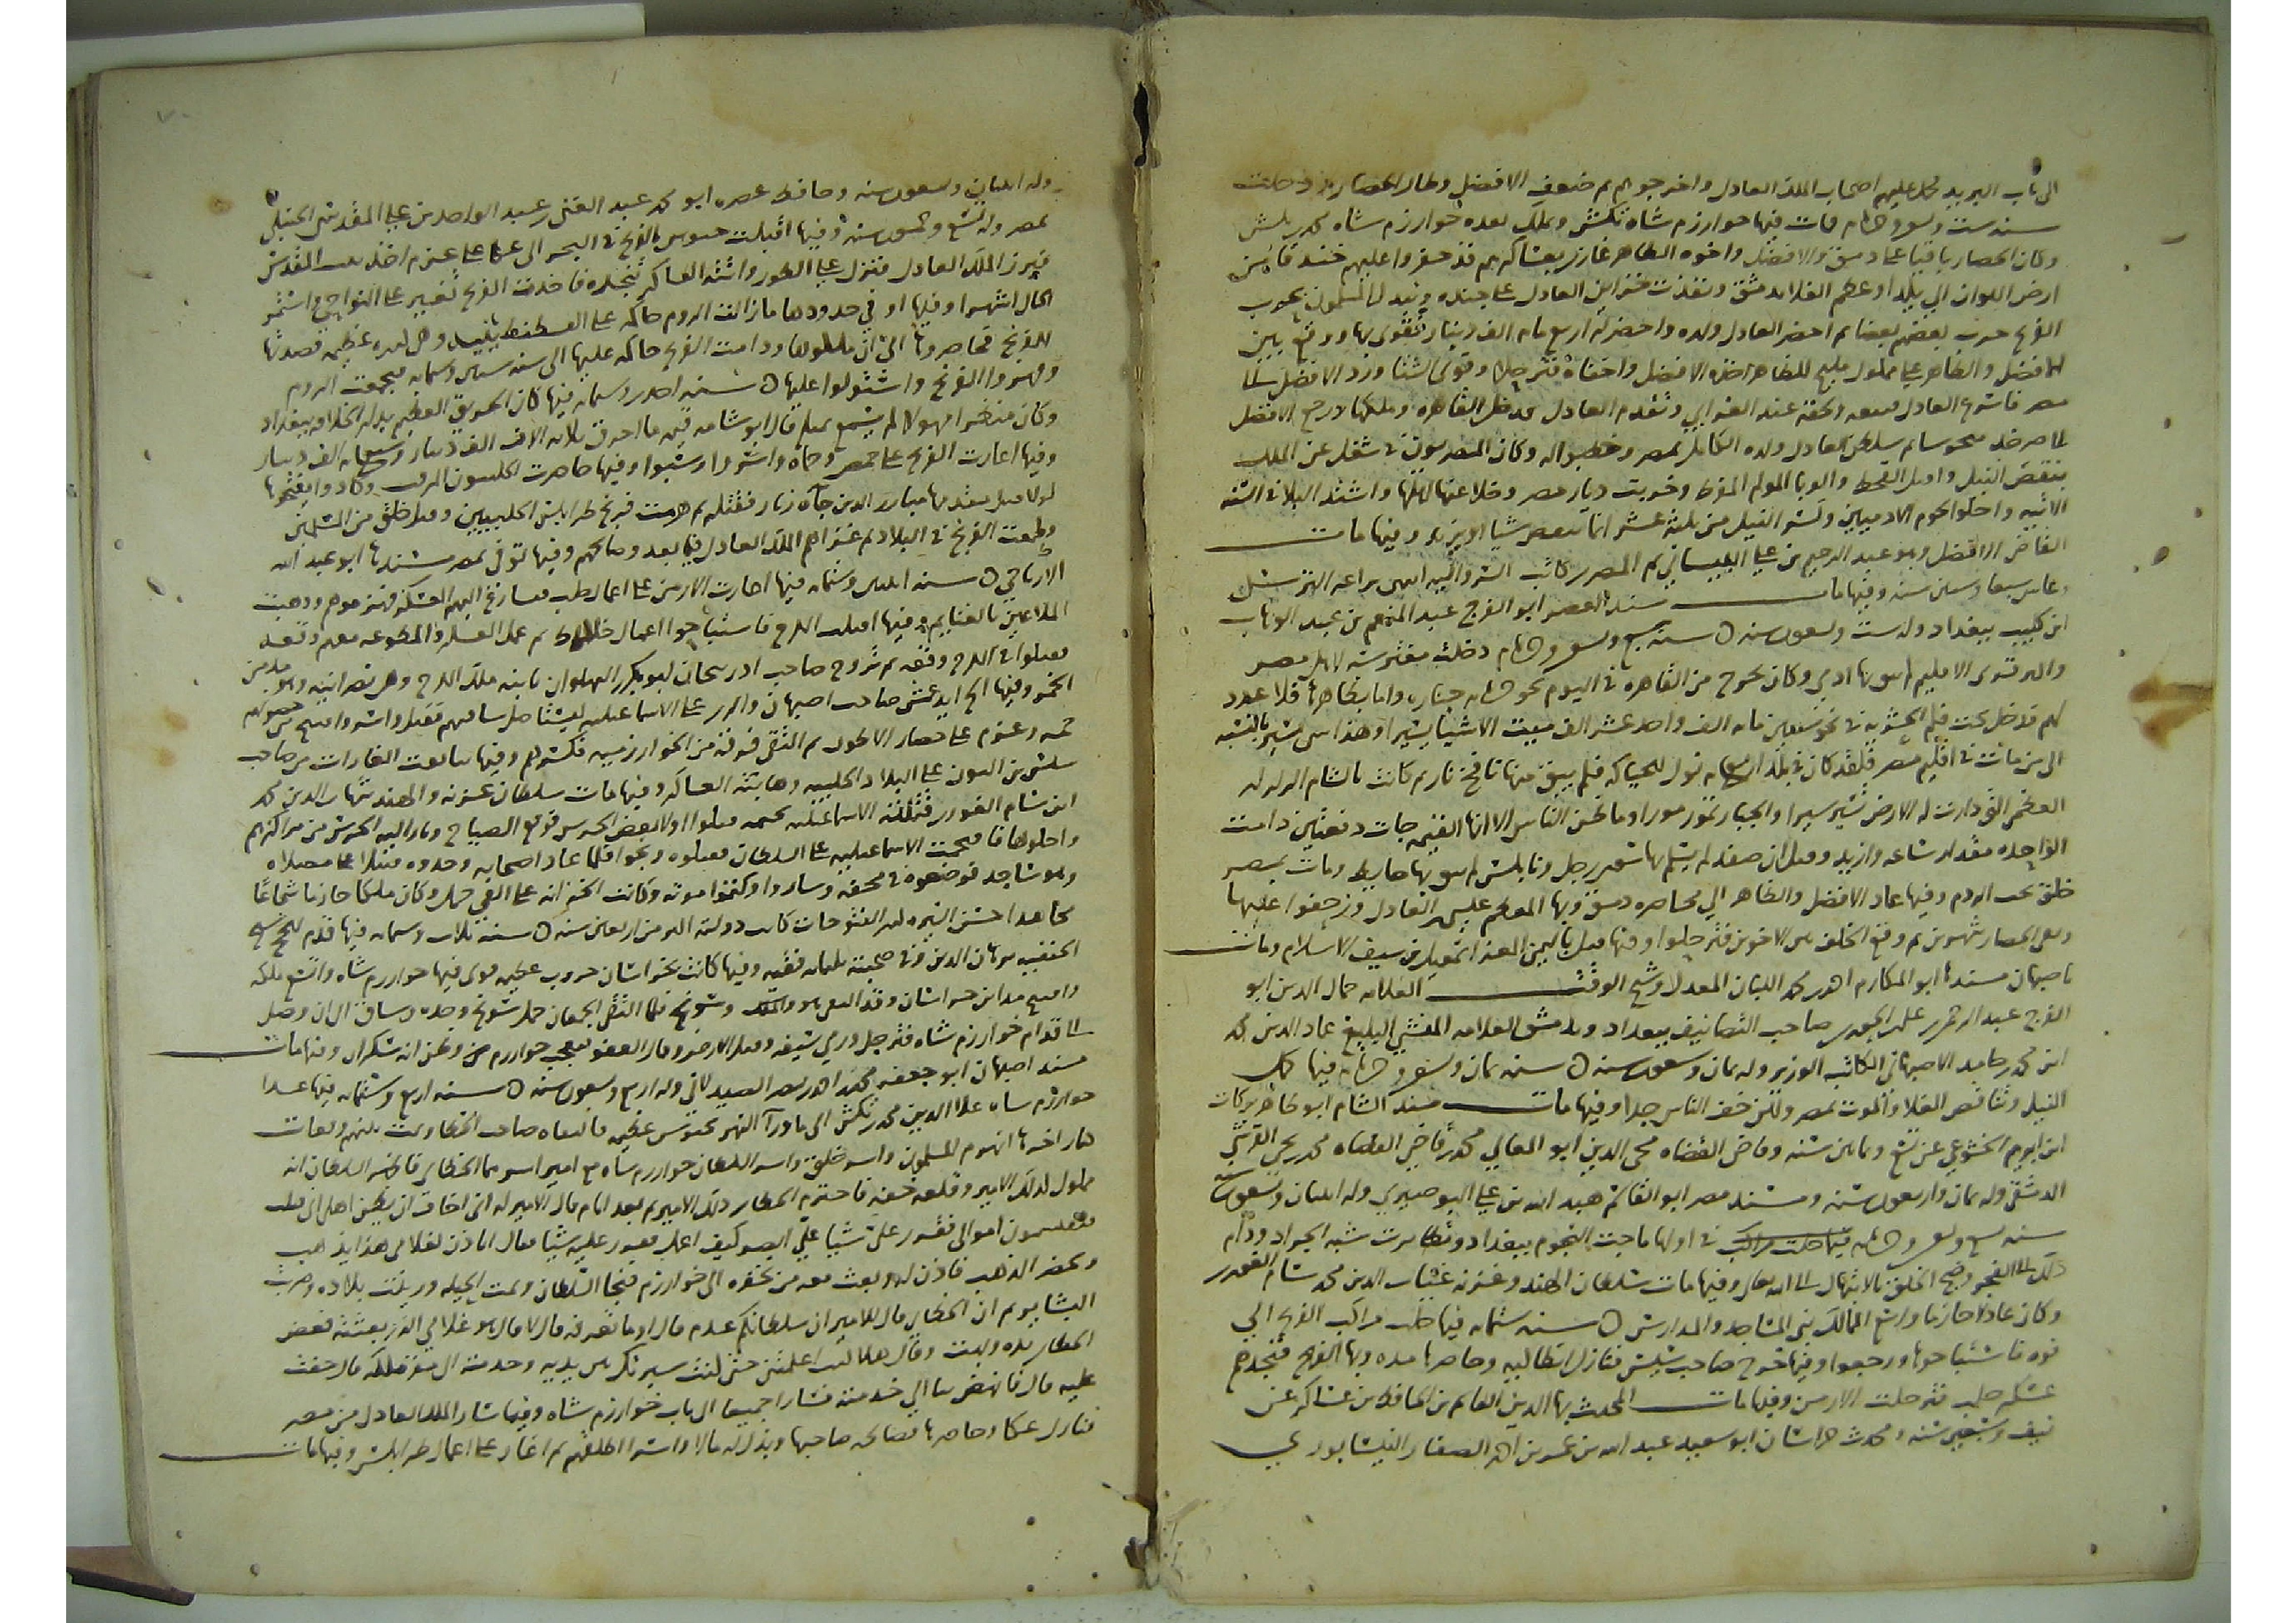 الى باب البريد فحمل عليهم اصحاب الملك العادل واخرجوهم ثم ضعف الافضل وطال الحصار ودخلت
سنة ست وتسعين وخمسمايه مات فيها خوارزم شاه تكش وتملك بعده خوارزم شاه محمد
وكان الحصار باقيا على دمشق والافضل واخوه الظاهر غازى بعساكرهم قد حفروا عليهم خندقا من
ارض اللوان الى يلدا وعظم الغلا بدمشق ونفذت خزاين العادل على جنده
ثم احضر العادل ولده واحضر له اربع مايه الف دينار فتقوى بها ووقع بين
الافضل والظاهر على مملوك مليح للظاهر اخذه الافضل واخفاه فترحلا وقوى الشتا ورد الافضل الى
مصر فاسرع العادل فتبعه ولحقه عند الغرابي وتقدم العادل فدخل القاهره وملكها ورجع الافضل
الى صرخد ثم سلطن العادل ولده الكامل بمصر وخطبوا له وكان المصريون في شغل عن الملك
بنقص النيل والقحط والوبا المولم المفرط وخربت ديار مصر وجلا عنها اهلها واشتد البلا في السنة
الاتيه واكلوا لحوم الادميين وكسر النيل من ثلثه عشر الا شيا وفيها مات
القاضي الافضل وهو عبد الرحيم بن علي البيساني ثم المصري كاتب السر واليه انتهى براعة الترسل
وعاش سبعا وستين سنه وفيها مات مسند العصر ابو الفرج عبد المنعم بن عبد الوهاب
ابن كليب ببغداد وله ست وتسعون سنه ه سنة سبع وتسعين وخمسمايه دخلت مفترسة لاهل مصر
والى قرى الاقليم لم يبق بها ادمي وكان يخرج من القاهره في اليوم نحو خمسمايه جنازه واما بظاهرها فلا عدد
لهم قد دخل تحت قلم الحشريه في نحو سنتين مايه الف واحد عشر الف ميت الا شيا يسيرا وهذا شي يسير بالنسبه
الى من مات في اقليم مصر فلقد كان في بلد اربع مايه نول للحياكه فلم يبق منها نافخ نار ثم كانت بالشام الزلزله
العظمى التي دارت لها الارض تسير سيرا والجبال تمور مورا وما ظن الناس الا انها القيمه جات دفعتين دامت
الواحده مقدار ساعه وازيد وقيل ان صفد لم يسلم بها سوى رجل ونابلس لم يبق بها حايط ومات بمصر
خلق تحت الردم وفيها عاد الافضل والظاهر الى محاصره دمشق وبها المعظم عيسى بن العادل وزحفوا عليها
وبقى الحصار شهرين ثم وقع الخلف بين الاخوين فترحلوا وفيها قتل باليمن المعز اسمعيل بن سيف الاسلام ومات
باصبهان مسندها ابو المكارم احمد بن محمد اللبان المعدل وشيخ الوقت العلامه جمال الدين ابو
الفرج عبد الرحمن بن علي بن الجوزي صاحب التصانيف ببغداد وبدمشق العلامه المنشي البليغ عماد الدين محمد
ابن محمد بن حامد الاصبهاني الكاتب الوزير وله ثمان وسبعون سنه ه سنة ثمان وتسعين وخمسمايه فيها كمل
النيل وتناقص الغلا والموت بمصر ولكن خف الناس جدا وفيها مات مسند الشام ابو طاهر بركات
ابن ابراهيم الخشوعي عن تسع وثمانين سنه وقاضي القضاه محيي الدين ابو المعالي محمد بن قاضي القضاه محمد بن يحيى القرشي
الدمشقي وله ثمان واربعون سنه ومسند مصر ابو القاسم هبه الله بن علي البوصيري وله اثنتان وتسعون سنه
سنه تسع وتسعين وخمسمايه في اولها ماجت النجوم ببغداد وتطايرت شبه الجراد ودام
ذلك الى الفجر وضج الخلق بالابتهال الى الله تعالى وفيها مات سلطان الهند وغزنه غياث الدين محمد بن سام الغوري
وكان عادلا حازما واسع الممالك بنى المساجد والمدارس ه سنه ستمايه فيها طلعت مراكب الفرنج الى
فوه فاستباحوها ورجعوا وفيها خرج صاحب سيس فنازل انطاكيه وحاصرها مده وبها الفرنج فنجدهم
عسكر حلب فترحلت الارمن وفيها مات المحدث بها الدين القاسم بن الحافظ بن عساكر عن
نيف وسبعين سنه ومحدث خراسان ابو سعيد عبد الله بن عمر بن احمد الصفار النيسابوري
وله اثنتان وتسعون سنه وحافظ عصره ابو محمد عبد الغني بن عبد الواحد بن علي المقدسي الحنبلي
بمصر وله تسع وخمسون سنه وفيها اقبلت جيوش الفرنج في البحر الى عكا على عزم اخذ بيت المقدس
فبرز الملك العادل فنزل على الطور واتته العساكر تنجده فاخذت الفرنج تغير على النواحي واستمر
الحال اشهرا وفيها او في حدودها ما زالت الروم حاكمه على القسطنطينيه وهي لهم عن ملوك قصدتها
الفرنج فحاصروها الى ان ملكوها ودامت الفرنج حاكمه عليها الى سنه ستين وستمايه فجمعت الروم
وهزموا الفرنج واستولوا عليها ه سنه احدى وستمايه فيها كان الحريق العظيم بدار الخلافه ببغداد
وكان منظرا مهولا لم يسمع بمثله قال ابو شامه قيمه ما احترق ثلاثه الاف الف دينار وسبعمايه الف دينار
وفيها اغارت الفرنج على حمص وحماه واسروا وسبوا وفيها حاصرت الحلبيون المرقب وكادوا يفتحوها
لولا قتل مقدمها مبارز الدين جاه زيار فقتله ثم هزمت فرنج طرابلس الحلبيين وقتل خلق من المسلمين
وطمعت الفرنج في البلاد ثم غزاهم الملك العادل فيما بعد وصالحهم وفيها توفي بمصر مسندها ابو عبد الله
الارتاحي ه سنه اثنتين وستمايه فيها اغارت الارمن على اعمال حلب فسارع اليهم العسكر فهزموهم وذهبت
الملاعين بالغنايم وفيها اقبلت الكرج فاستباحوا اعمال خلاط ثم عمل العسكر والمطوعه معهم وقعه
فقتلوا في الكرج وقعه ثم تزوج صاحب اذربيجان ابو بكر بن البهلوان بابنه ملك الكرج وهي نصرانيه
الخمر وفيها ايدغمش صاحب اصبهان والري على الاسماعيليه ليستاصل شافتهم فقتل واسر وافتتح من حصونهم
خمسه وعزم على حصار الالموت ثم التقى فرقه من الخوارزميه فكسرهم وفيها تتابعت الغارات من صاحب
سيس بن لاون على البلاد الحلبيه وهابته العساكر وفيها مات سلطان غزنه والهند شهاب الدين محمد
ابن سام الغوري قتلته الاسماعيليه
واحاطوها فهجمت الاسماعيليه على السلطان فقتلوه ونجوا فلما عاد اصحابه وجدوه قتيلا على مصلاه
وهو ساجد فوضعوه في محفه وساروا وكتموا موته وكانت الخزانه على الفي جمل وكان ملكا حازما شجاعا
مجاهدا حسن السيره له الفتوحات كانت دولته اكثر من اربعين سنه ه سنه ثلاث وستمايه فيها قدم للحج شيخ
الحنفيه برهان الدين وفي صحبته ثلثمايه فقيه وفيها كانت بخراسان حروب عظيمه قوي فيها خوارزم شاه واتسع ملكه
وافتتح مداين خراسان وقد التقى هو وسونج فلما التقى الجمعان حمل سونج وحده وساق الى ان وصل
الى قدام خوارزم شاه فترجل ورمى سيفه وقبل الارض وقال العفو فعجب خوارزم شاه وظن انه سكران وفيها مات
مسند اصبهان ابو جعفر محمد بن احمد بن نصر الصيدلاني وله اربع وتسعون سنه ه سنه اربع وستمايه فيها عدا
خوارزم شاه علا الدين محمد بن تكش الى ما ورا النهر بجيوش عظيمه فالتقاه صاحب الخطا وتمت بينهم وقعات
كان اخرها انهزم المسلمون واسر خلق واسر السلطان خوارزم شاه مع امير اسرهما الخطاي فاظهر السلطان انه
مملوك لذلك الامير وقلعه خفه فاحترم الخطاي ذلك الامير ثم بعد ايام قال الامير له اني اخاف ان يظن اهلي اني قتلت
فيقتسمون اموالي فقرر علي شيا علي احصله فقرر عليه شيا فقال ايذن لغلامي هذا يذهب
ويحضر الذهب فاذن له وبعث معه من يخفره الى خوارزم فنجا السلطان وتمت الحيله وزينت بلاده وضربت
البشاير ثم ان الخطاي قال للامير ان سلطانكم عدم قال او ما تعرفه قال لا قال هو غلامي الذي بعثته فعض
الخطاي يده وبهت وقال هلا كنت اعلمتني حتى كنت سيرتك بين يديه وخدمته الى مقر ملكه قال خفت
عليه قال فانهض بنا الى خدمته فسارا جميعا الى باب خوارزم شاه وفيها سار الملك العادل من مصر
فنازل عكا وحاصرها فصالحه صاحبها وبذل له مالا واسرا اطلقهم ثم اغار على اعمال طرابلس وفيها مات